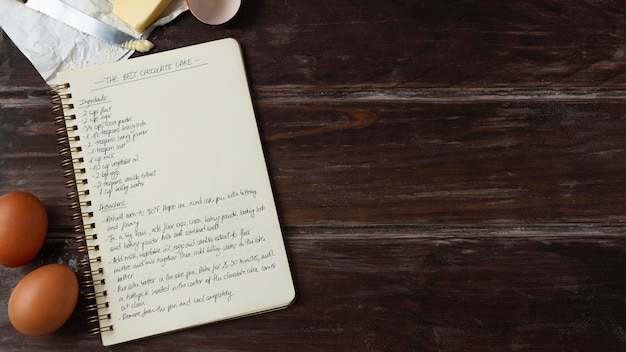 - THE BEST CHOCOLATE CAKE -
Ingredients:
2 cups flour
2 cups sugar
3/4 cups cocoa powder
2 teaspoons baking powder
1 teaspoon salt
1 cup milk
1/2 cup vegetable oil
2 eggs
2 teaspoons vanilla extract
1 cup boiling water
Instructions:
- Preheat oven to 350°F. Prepare one round cake pan with buttering
and flouring
- In a big bowl, add flour, sugar, cocoa, baking powder, baking soda
and
- Add milk, vegetable oil, eggs and vanilla extract to flour
mixture and mix together. Then, add boiling water to the cake
batter.
- Pour cake batter in the cake pan. Bake for 30 minutes, until
a toothpick inserted in the center of the chocolate cake comes
out clean.
- Remove from the pan and cool completely.